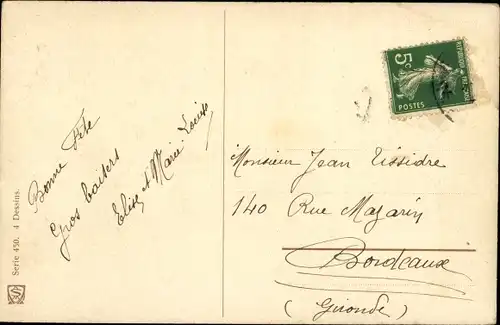 Bonne Fête
Gros baisers
Elise et Marie Louise
Serie 450. 4 Dessins.
5c
POSTES
Monsieur Jean Tissidre
140 Rue Mazarin
Bordeaux
(Gironde)